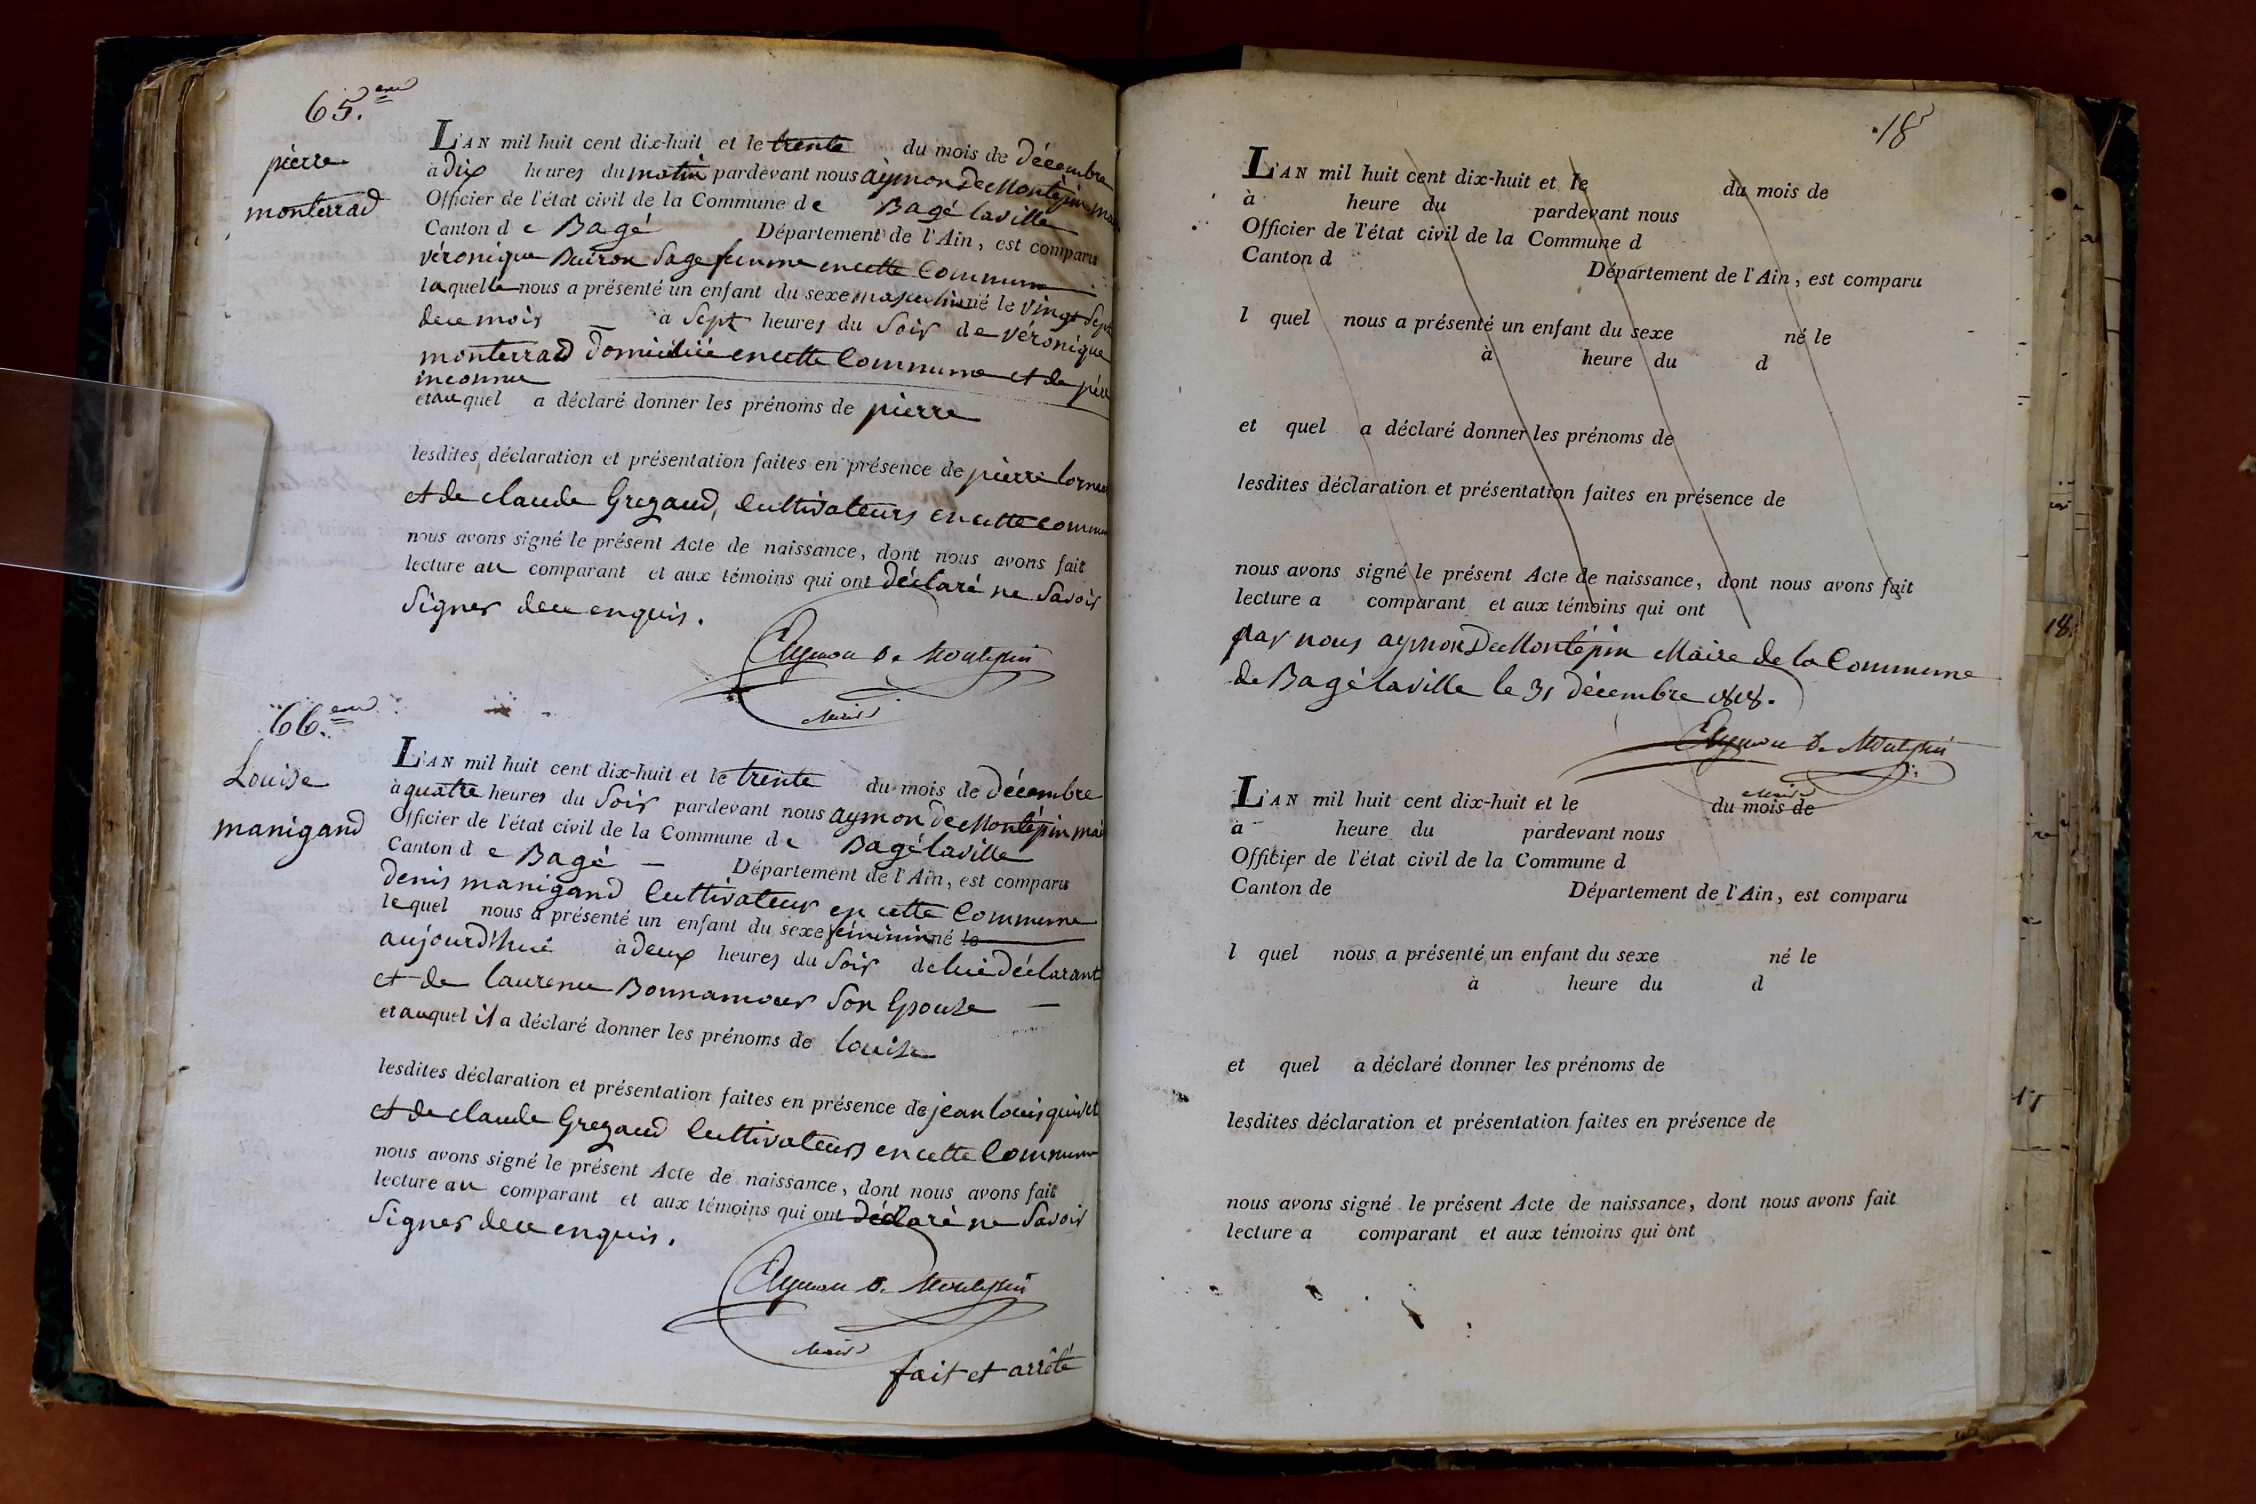 65.eme
pierre
monterrad
L'AN mil huit cent dix-huit et le trente du mois de décembre
à dix heures du matin pardevant nous aymon De Montépin mai
Officier de l'état civil de la Commune de Bagé laville
Canton de Bagé Département de l'Ain, est comparu
véronique sage femme en cette Commune
laquelle nous a présenté un enfant du sexe masculin né le vingt sept
de ce mois à sept heures du soir de véronique
monterrad domicilié en cette Commune et de père
inconnu
et au quel a déclaré donner les prénoms de pierre
lesdites déclaration et présentation faites en présence de pierre
et de claude Grezaud, Cultivateurs en cette commun
nous avons signé le présent Acte de naissance, dont nous avons fait
lecture au comparant et aux témoins qui ont déclaré ne savoir
signer de ce enquis.
Aymon De Montépin
Maire
66.eme
Louise
manigand
L'AN mil huit cent dix-huit et le trente du mois de décembre
à quatre heures du soir pardevant nous aymon de Montépin mai
Officier de l'état civil de la Commune de Bagé laville
Canton de Bagé — Département de l'Ain, est comparu
denis manigand Cultivateur en cette Commune
lequel nous a présenté un enfant du sexe féminin né le
aujourd'hui à deux heures du soir de lui déclarant
et de laurence Bonnamour son Epouse —
et auquel il a déclaré donner les prénoms de louise
lesdites déclaration et présentation faites en présence de jean louis
et de claude Grezaud Cultivateurs en cette Commune
nous avons signé le présent Acte de naissance, dont nous avons fait
lecture au comparant et aux témoins qui ont déclaré ne savoir
signer de ce enquis.
Aymon De Montépin
Maire
fait et arrêté
18
L'AN mil huit cent dix-huit et le du mois de
à heure du pardevant nous
Officier de l'état civil de la Commune d
Canton d Département de l'Ain, est comparu
l quel nous a présenté un enfant du sexe né le
à heure du d
et quel a déclaré donner les prénoms de
lesdites déclaration et présentation faites en présence de
nous avons signé le présent Acte de naissance, dont nous avons fait
lecture a comparant et aux témoins qui ont
par nous aymon De Montépin Maire de la Commune
de Bagé laville le 31 décembre 1818.
Aymon De Montépin
Maire
L'AN mil huit cent dix-huit et le du mois de
à heure du pardevant nous
Officier de l'état civil de la Commune d
Canton de Département de l'Ain, est comparu
l quel nous a présenté un enfant du sexe né le
à heure du d
et quel a déclaré donner les prénoms de
lesdites déclaration et présentation faites en présence de
nous avons signé le présent Acte de naissance, dont nous avons fait
lecture a comparant et aux témoins qui ont
18